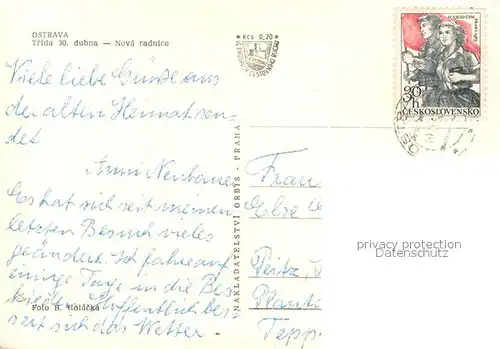 OSTRAVA
Třída 30. dubna — Nová radnice
Kčs 0,20
Viele liebe Grüsse aus
der alten Heimat sen-
det
Anni Neubauer
Es hat sich seit meinem
letzten Besuch vieles
geändert. Ich fahre auf
einige Tage in die Bes-
kiede. Hoffentlich bes-
sert sich das Wetter
Foto B. Holáčka
NAKLADATELSTVÍ ORBIS - PRAHA
30 h
ČESKOSLOVENSKO
Frau
Else
Peitz,
privacy protection
Datenschutz